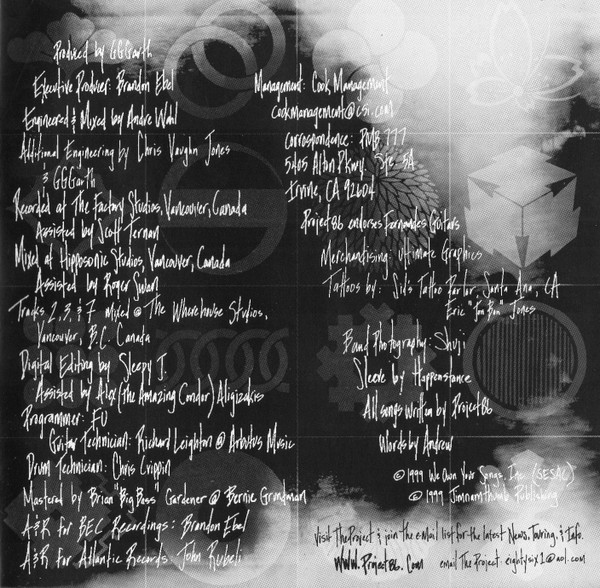 Produced by GGGarth
Executive Producer: Brandon Ebel
Engineered & Mixed by Andre Wahl
Additional Engineering by Chris Vaughn Jones
& GGGarth
Recorded at The Factory Studios, Vancouver, Canada
Assisted by Scott Ternan
Mixed at Hipposonic Studios, Vancouver, Canada
Assisted by Roger Swan
Tracks 2, 3, & 7 mixed @ The Wherehouse Studios,
Vancouver, B.C. Canada
Digital Editing by Sleepy J.
Assisted by Alex (The Amazing Condor) Aligizakis
Programmer: FU
Guitar Technician: Richard Leighton @ Arbutus Music
Drum Technician: Chris Crippin
Mastered by Brian "Big Bass" Gardener @ Bernie Grundman
A&R for BEC Recordings: Brandon Ebel
A&R for Atlantic Records John Rubeli
Management: Cook Management
Cookmanagement@csi.com
Correspondence: PMB 777
5405 Alton Pkwy. Ste 5A
Irvine, CA 92604
Project 86 endorses Fernandes Guitars
Merchandising: Ultimate Graphics
Tattoos by: Sid's Tattoo Parlor, Santa Ana, CA
Eric Jones
Band Photography: Shuji
Sleeve by Happenstance
All songs written by Project 86
Words by Andrew
© 1999 We Own Your Songs, Inc. (SESAC)
© 1999 Jimnamthumb Publishing
Visit The Project & join the e-Mail list for the latest News, Touring, & Info.
WWW.Project86.Com email The Project: eightysix1@aol.com